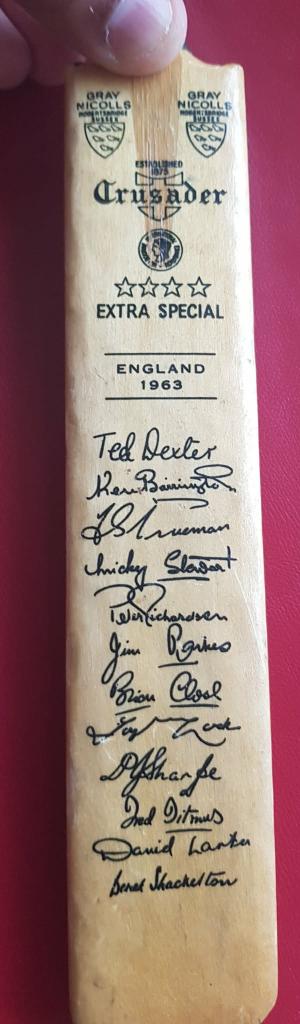 GRAY NICOLLS
ROBERTSBRIDGE
SUSSEX
GRAY NICOLLS
ROBERTSBRIDGE
SUSSEX
ESTABLISHED
1875
Crusader
EXTRA SPECIAL
ENGLAND
1963
Ted Dexter
Ken Barrington
F S Trueman
Micky Stewart
Peter Richardson
Jim Parks
Brian Close
Tony Lock
P J Sharpe
Fred Titmus
David Larter
Derek Shackleton